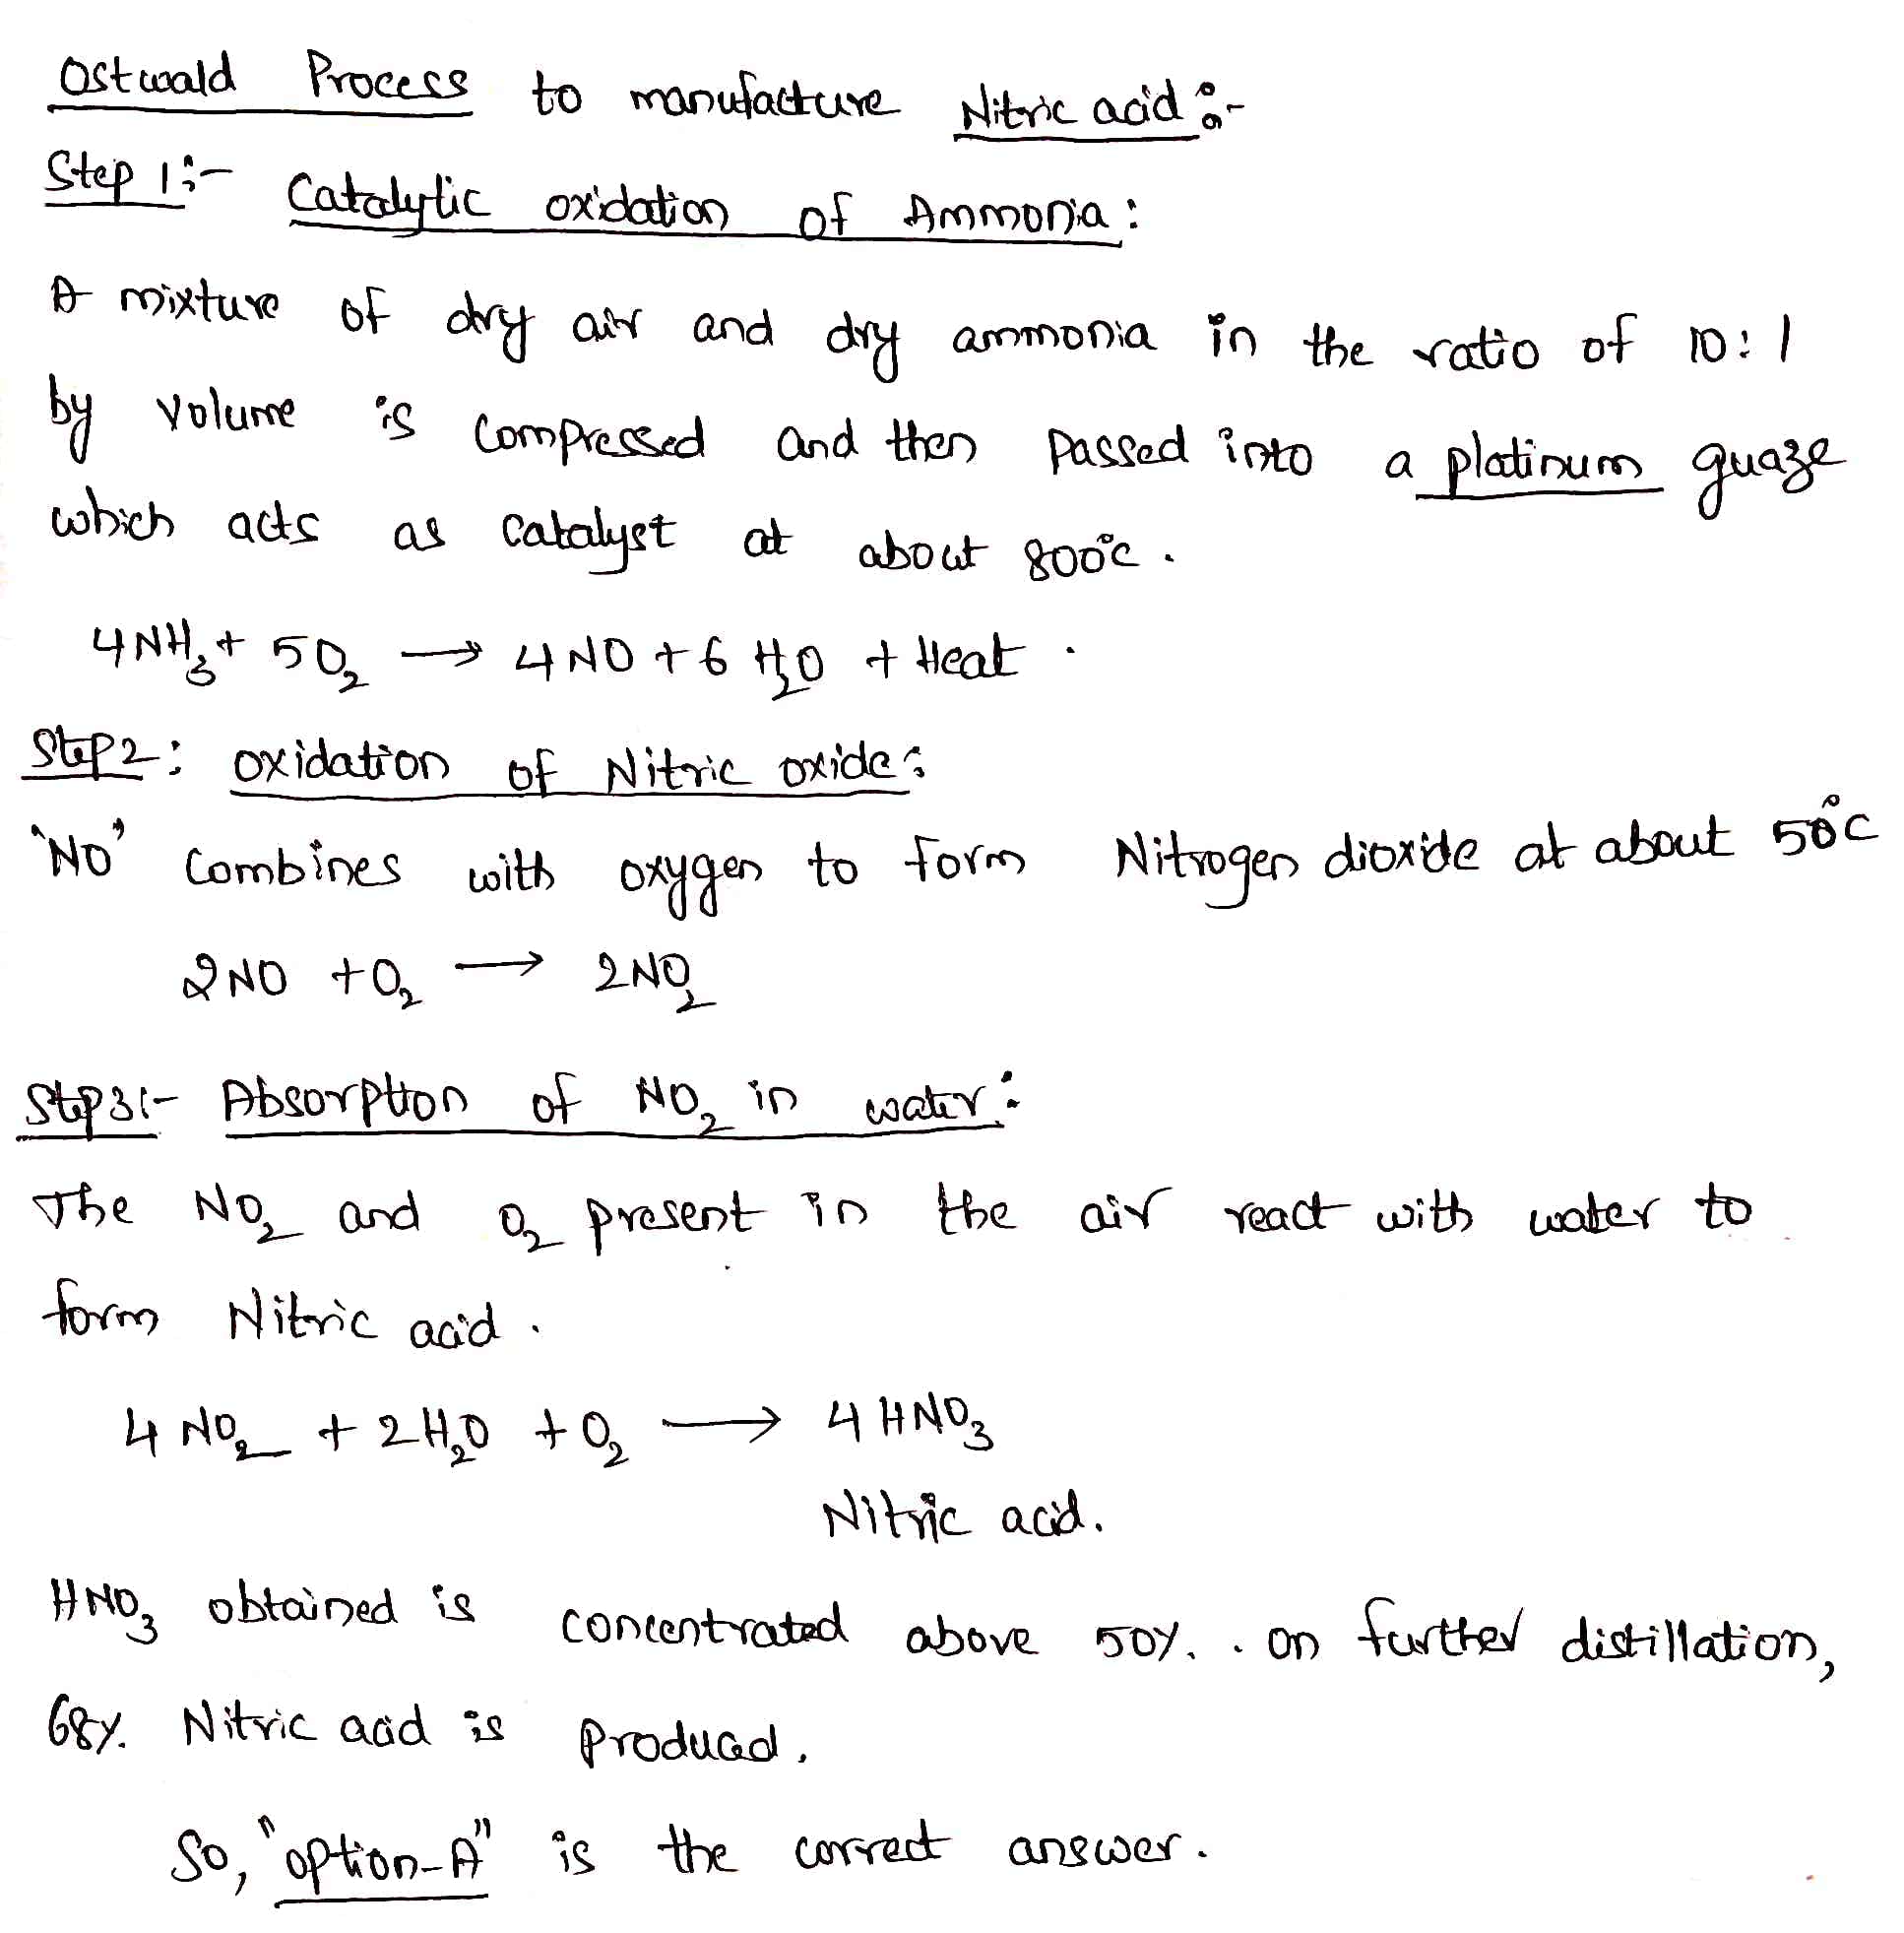 Ostwald Process to manufacture Nitric acid :-
Step 1 :- Catalytic oxidation of Ammonia :
A mixture of dry air and dry ammonia in the ratio of 10 : 1
by volume is compressed and then passed into a platinum guaze
which acts as catalyst at about 800°C .
4NH₃ + 5O₂ → 4NO + 6 H₂O + Heat .
Step 2 : oxidation of Nitric oxide :
'NO' combines with oxygen to form Nitrogen dioxide at about 50°C
2NO + O₂ → 2NO₂
Step 3 :- Absorption of NO₂ in water :
The NO₂ and O₂ present in the air react with water to
form Nitric acid .
4 NO₂ + 2H₂O + O₂ → 4 HNO₃
Nitric acid.
HNO₃ obtained is concentrated above 50% . on further distillation,
68% Nitric acid is produced .
So, "option-A" is the correct answer .